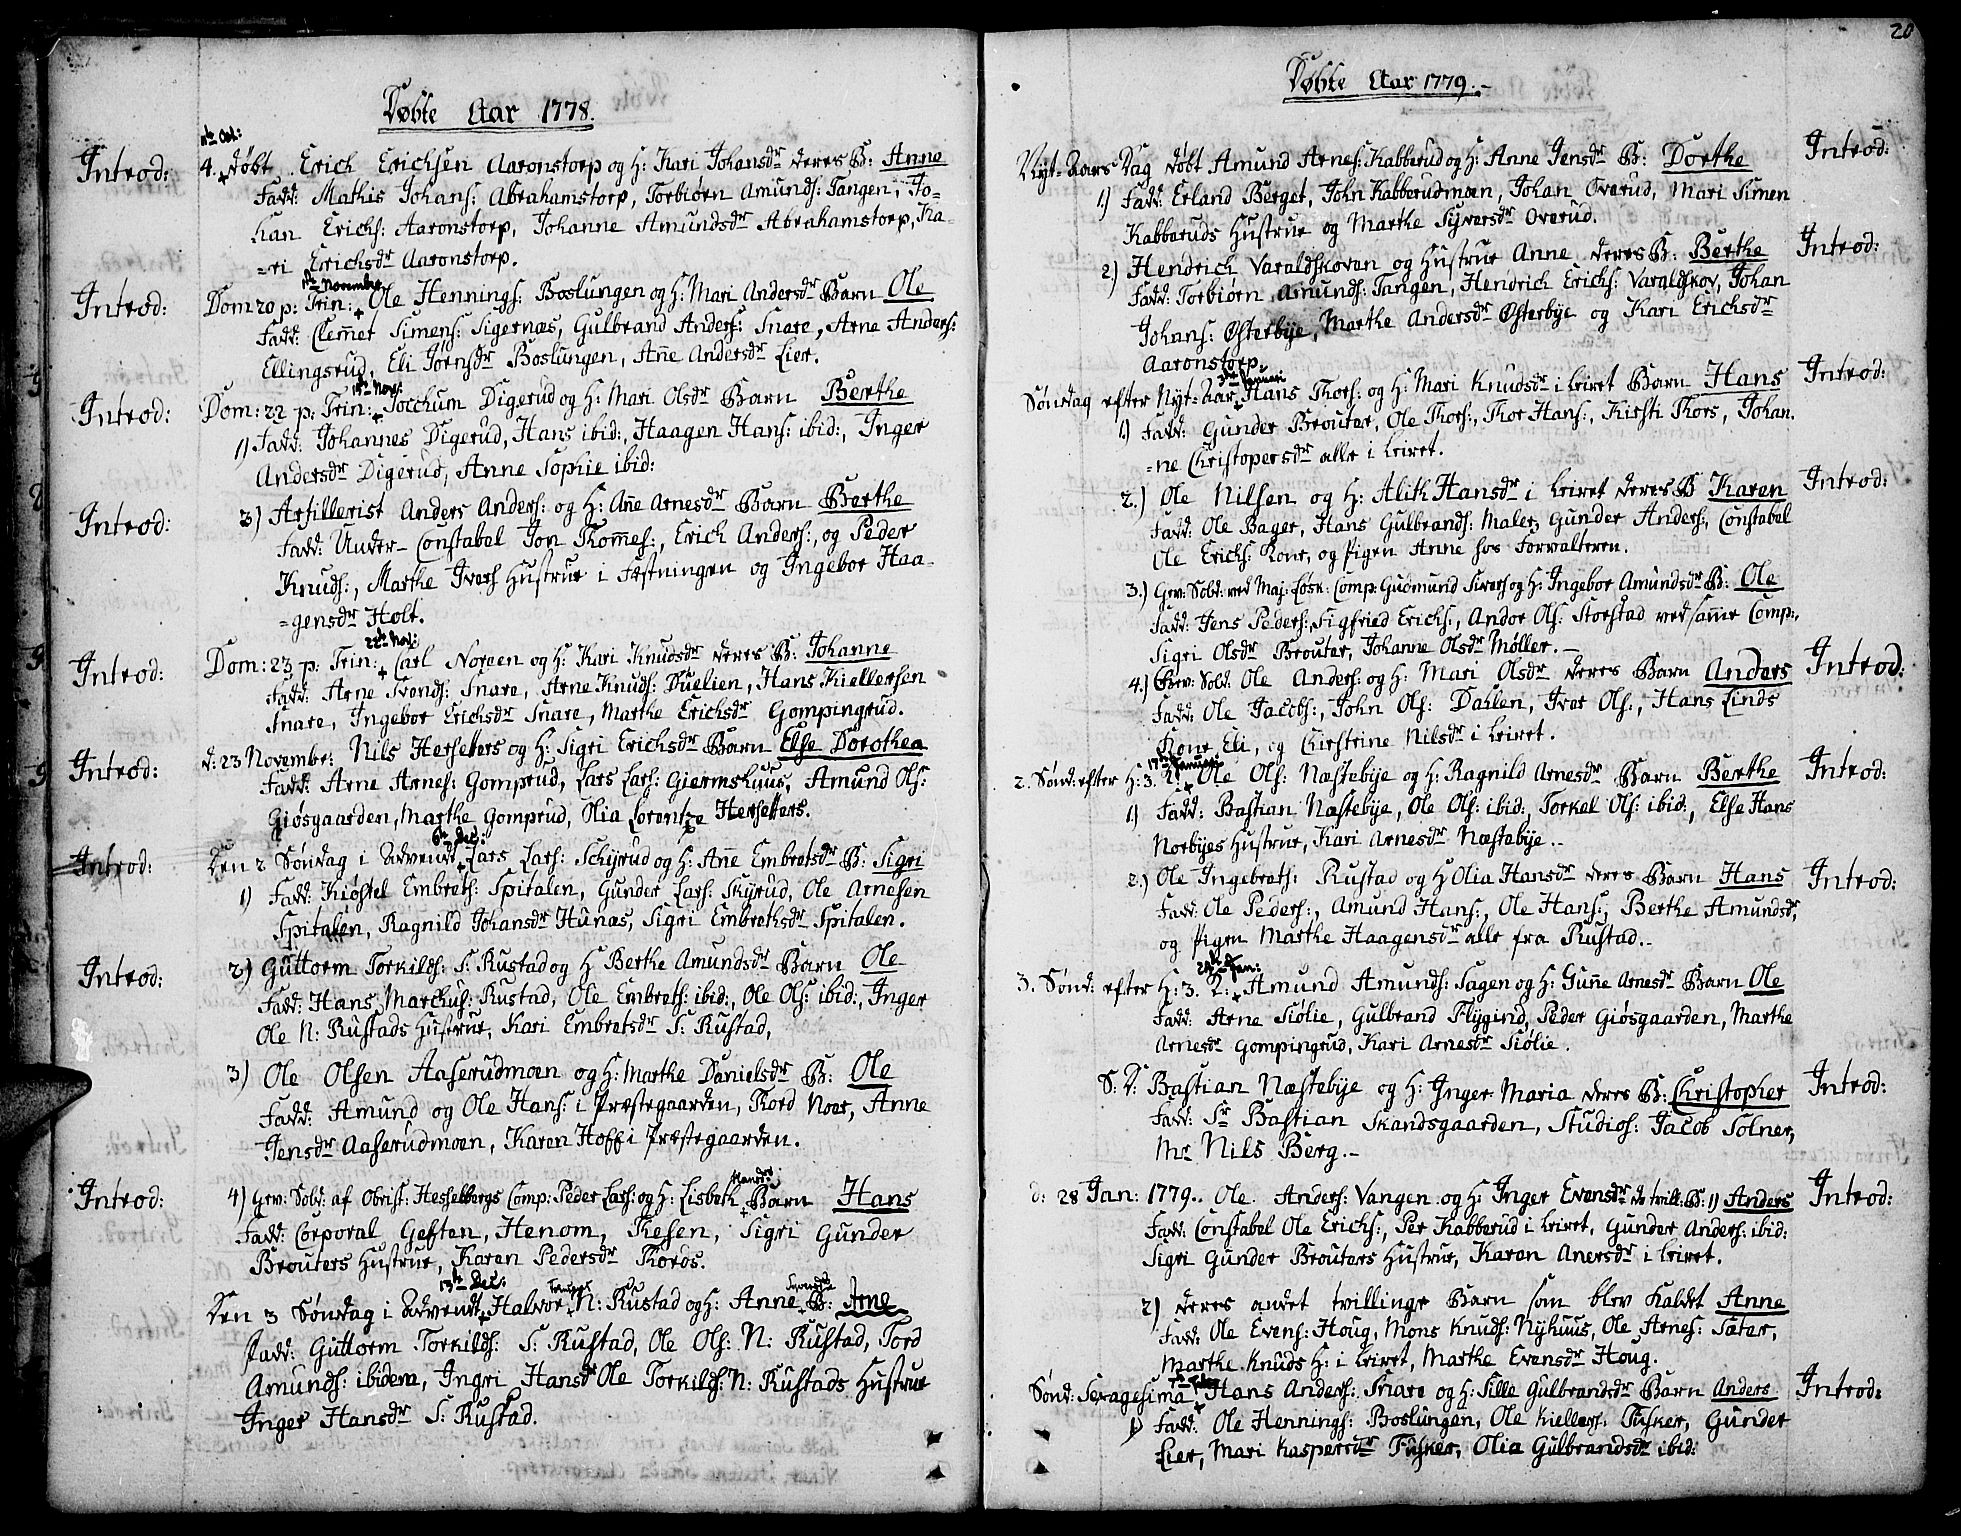 Døbte Aar 1778.
Introd: 4. døbt Erich Erichsen Aaronstorp og H: Kari Johansdr deres B: Anne
Fadd: Mathis Johans: Abrahamstorp, Torbiørn Amunds: Tangen, Jo-
han Erichs: Aaronstorp, Johanne Amundsdr Abrahamstorp, Ka-
=ri Erichsdr Aaronstorp.
1ste Novembr
Introd: Dom 20 p: Trin: Ole Hennings: Boslungen og H: Mari Andersdr Barn Ole
Fadd: Clemet Simens: Sigernæs, Gulbrand Anders: Snare, Arne Anders:
Ellingsrud, Eli Jørnsdr Boslungen, Ane Andersdr Lier.
15de Nov:
Introd: Dom: 22 p: Trin: Jocchum Digerud og H: Mari Olsdr Barn Berthe
1) Fadd: Johannes Digerud, Hans ibid:, Haagen Hans: ibid:, Inger
Andersdr Digerud, Anne Sophie ibid:
Introd: 3) Artillerist Anders Anders: og H: Ane Arnesdr Barn Berthe
Fadd: Under-Constabel Jon Tommes:, Erich Anders:, og Peder
Knuds:, Marthe Ivers Hustrue i Fæstningen og Ingebor Haa-
=gensdr Holt.
22de Nov:
Introd: Dom: 23 p: Trin: Carl Noreen og H: Kari Knudsdr deres B: Johanne
Fadd: Arne Svends: Snare, Arne Knuds: Duelien, Hans Kiellersen
Snare, Ingebor Erichsdr Snare, Marthe Erichsdr Gompingrud.
Introd: d: 23 November: Nils Hersetters og H: Sigri Erichsdr Barn Else Dorothea
Fadd: Arne Arnes: Gomprud, Lars Lars: Giermshuus, Amund Ols:
Giøsgaarden, Marthe Gomprud, Olia Lorentze Hersetters.
6te Dec:
Introd: Den 2 Søndag i Advendt Lars Lars: Schÿrud og H: Ane Embretsdr B: Sigri
1) Fadd: Kiøstel Embrets: Spitalen, Gunder Lars: Skyrud, Ole Arnesen
Spitalen, Ragnild Johansdr Hunæs, Sigri Embrethsdr Spitalen.
Introd: 2) Guttorm Torkilds: S: Rustad og H Berthe Amundsdr Barn Ole
Fadd: Hans Marchus: Rustad, Ole Embrets: ibid:, Ole Ols: ibid:, Inger
Ole N: Rustads Hustrue, Kari Embretsdr S: Rustad,
3) Ole Olsen Aaserudmoen og H: Marthe Danielsdr B: Ole
Fadd: Amund og Ole Hans: i Præstegaarden, Tord Noer, Anne
Jensdr Aaserudmoen, Karen Hoff i Præstegaarden.
Introd: 4) Gev: Sold: af Obrist: Hesselbergs Comp: Peder Lars: og H: Lisbeth Barn Hans
Fadd: Corporal Geften, Henom, Thesen, Sigri Gunder
Brouters Hustrue, Karen Pedersdr Thords.
13de Dec:
Den 3 Søndag i Advendt Halvor N: Rustad og H: Anne B: Arne
Fadd: Guttorm Torkilds: S: Rustad, Ole Ols: N: Rustad, Tord
Amunds: ibidem, Ingri Hansdr Ole Torkilds: N: Rustads Hustrue
Inger Hansdr S: Rustad.
20
Døbte Aar 1779.-
Nyt-Aars Dag døbt Amund Arnes: Kabberud og H: Anne Jensdr B: Dorthe Introd:
1) Fadd: Erland Berget, John Kabberudmoen, Johan Overud, Mari Simen
Kabberuds Hustrue og Marthe Syversdr Overud.
2) Hendrich Varaldskovan og Hustrue Anne deres B: Berthe Introd:
Fadd: Torbiørn Amunds: Tangen, Hendrich Erichs: Varaldskov, Johan
Johans: Østerbÿe, Marthe Andersdr Østerbÿe og Kari Erichsdr
Aaronstorp.
3die Januari
Søndag efter Nyt-Aar Hans Thors: og H: Mari Knudsdr i Leiret Barn Hans Introd:
1) Fadd: Gunder Brouter, Ole Thors:, Thor Hans:, Kirsti Thors, Johan-
=ne Christopersdr alle i Leiret.
2.) Ole Nilsen og H: Alith Hansdr i Leiret deres B Karen Introd:
Fadd: Ole Bager, Hans Gulbrands: Maler, Gunder Anders:, Constabel
Ole Erichs: Kone, og Pigen Anne hos Forvalteren.
3.) Gev: Sold: ved Maj: Løsk: Comp: Gudmund Sivers: og H: Ingebor Amundsdr B: Ole
Fadd: Jens Peders:, Sigfried Erichs:, Andor Ols: Storstad ved same Comp:,
Sigri Olsdr Brouter, Johanne Olsdr Møller.-
4.) Gev: Sold: Ole Anders: og H: Mari Olsdr deres Barn Anders Introd:
Fadd: Ole Jacobs:, John Ols: Dahlen, Iver Ols:, Hans Linds
Kone Eli, og Chirstine Nilsdr i Leiret.
17de Januari
2. Sønd: efter H: 3. K: Ole Ols: Næstebÿe og H: Ragnild Arnesdr Barn Berthe Introd:
1) Fadd: Bastian Næstebÿe, Ole Ols: ibid:, Torkel Ols: ibid:, Else Hans
Norbyes Hustrue, Kari Arnesdr Næstebÿe.-
2.) Ole Ingebrets: Rustad og H Olia Hansdr deres Barn Hans Introd:
Fadd: Ole Peders:, Amund Hans:, Ole Hans:, Berthe Amundsdr,
og Pigen Marthe Haagensdr alle fra Rustad.-
24de Jan:
3. Sønd: efter H: 3. K: Amund Amunds: Sagen og H: Gune Arnesdr Barn Ole
Fadd: Arne Siølie, Gulbrand Flygind, Peder Giøsgaarden, Marthe
Arnesdr Gompingrud, Kari Arnesdr Siølie.
S: D: Bastian Næstebÿe og H: Inger Maria deres B: Christopher Introd:
Fadd: Sr Bastian Skandsgaarden, Studios: Jacob Solner,
Mr Nils Berg.-
d: 28 Jan: 1779.. Ole Anders: Vangen og H: Inger Evensdr do tvill: B: 1) Anders Introd:
Fadd: Constabel Ole Erichs:, Per Kabberud i Leiret, Gunder Anders: ibid:
Sigri Gunder Brouters Hustrue, Karen Anersdr i Leiret.
2) deres andet tvillinge Barn som blev kaldet Anne
Fadd: Ole Evens: Houg, Mons Knuds: Nÿhuus, Ole Arnes: Sæter,
Marthe Knuds H: i Leiret, Marthe Evensdr Houg.
Sønd: Sexagesima Hans Anders: Snare og H: Sille Gulbrandsdr Barn Anders Introd:
1) Fadd: Ole Hennings: Boslungen, Ole Kiellers: Tusker, Gunder
Lier, Mari Kaspersdr Tusker, Olia Gulbrandsdr ibid: